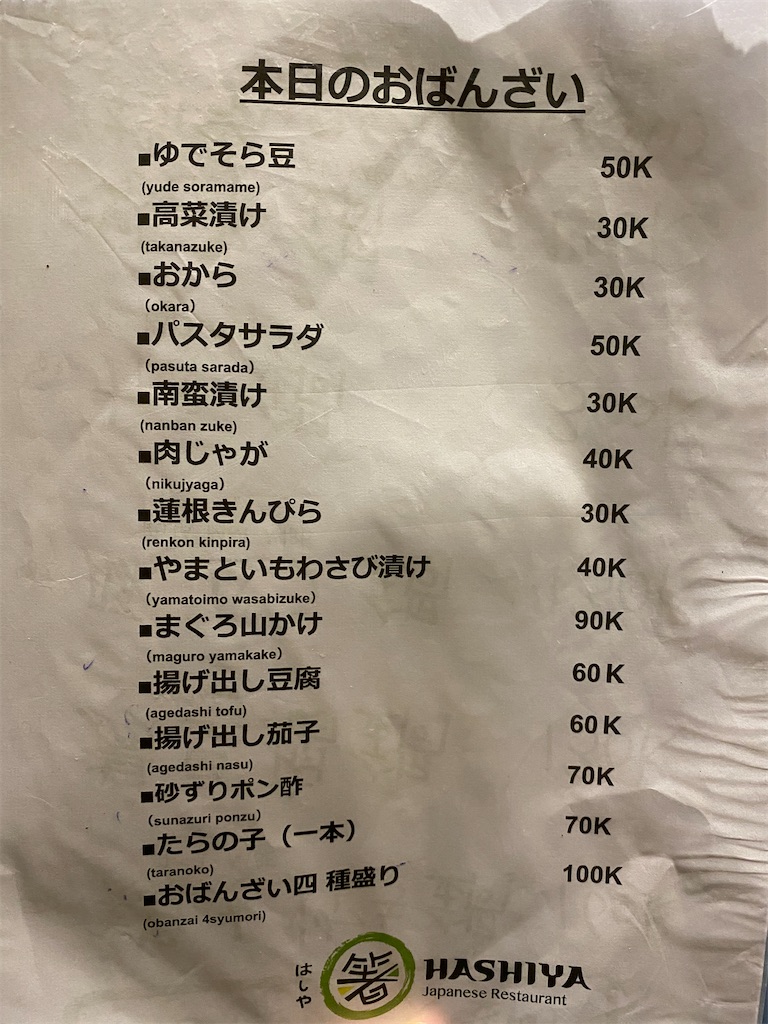 本日のおばんざい
■ゆでそら豆 50K
(yude soramame)
■高菜漬け 30K
(takanazuke)
■おから 30K
(okara)
■パスタサラダ 50K
(pasuta sarada)
■南蛮漬け 30K
(nanban zuke)
■肉じゃが 40K
(nikujyaga)
■蓮根きんぴら 30K
(renkon kinpira)
■やまといもわさび漬け 40K
(yamatoimo wasabizuke)
■まぐろ山かけ 90K
(maguro yamakake)
■揚げ出し豆腐 60K
(agedashi tofu)
■揚げ出し茄子 60K
(agedashi nasu)
■砂ずりポン酢 70K
(sunazuri ponzu)
■たらの子（一本） 70K
(taranoko)
■おばんざい四 種盛り 100K
(obanzai 4syumori)
はしや 箸 HASHIYA
Japanese Restaurant